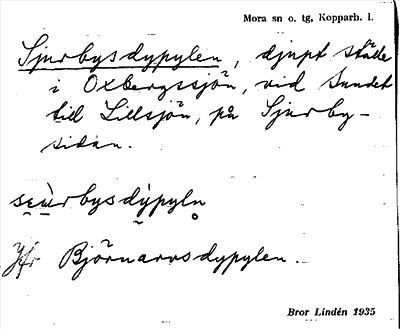 Mora sn o. tg, Kopparb. l.
Sjurbysdypylen, djupt ställe
i Oxbergssjön, vid Sundet
till Lillsjön, på Sjurby-
sidan.
Jfr Björnarvsdypylen.
Bror Lindén 1935